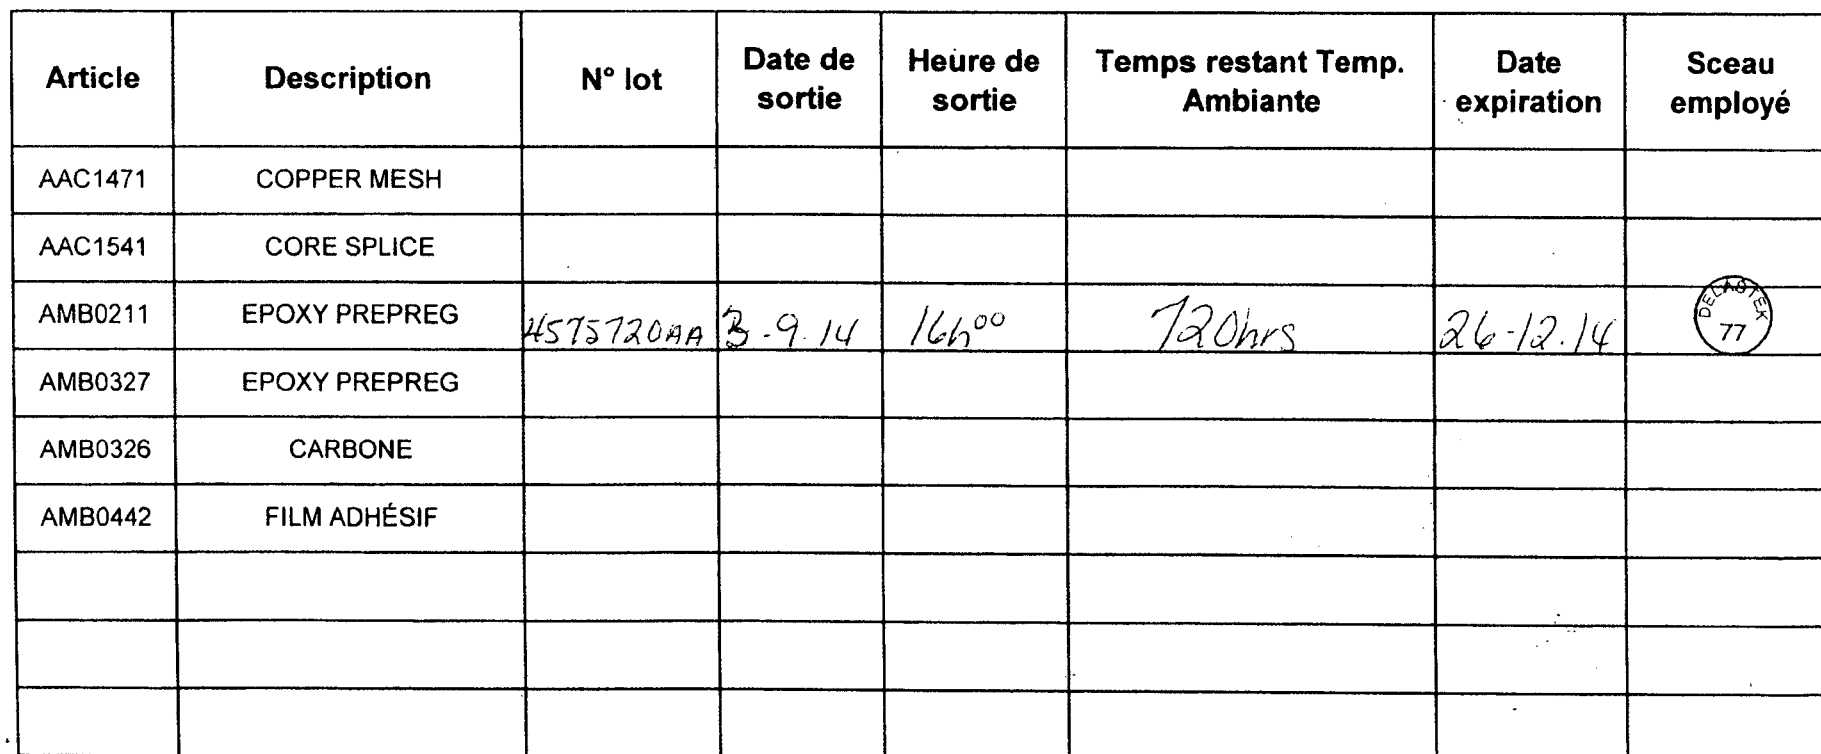 Article Description N° lot Date de sortie Heure de sortie Temps restant Temp. Ambiante Date expiration Sceau employé
AAC1471 COPPER MESH
AAC1541 CORE SPLICE
AMB0211 EPOXY PREPREG 4575720AA 3-9.14 16h00 720hrs 26-12.14 DELASTEK 77
AMB0327 EPOXY PREPREG
AMB0326 CARBONE
AMB0442 FILM ADHÉSIF